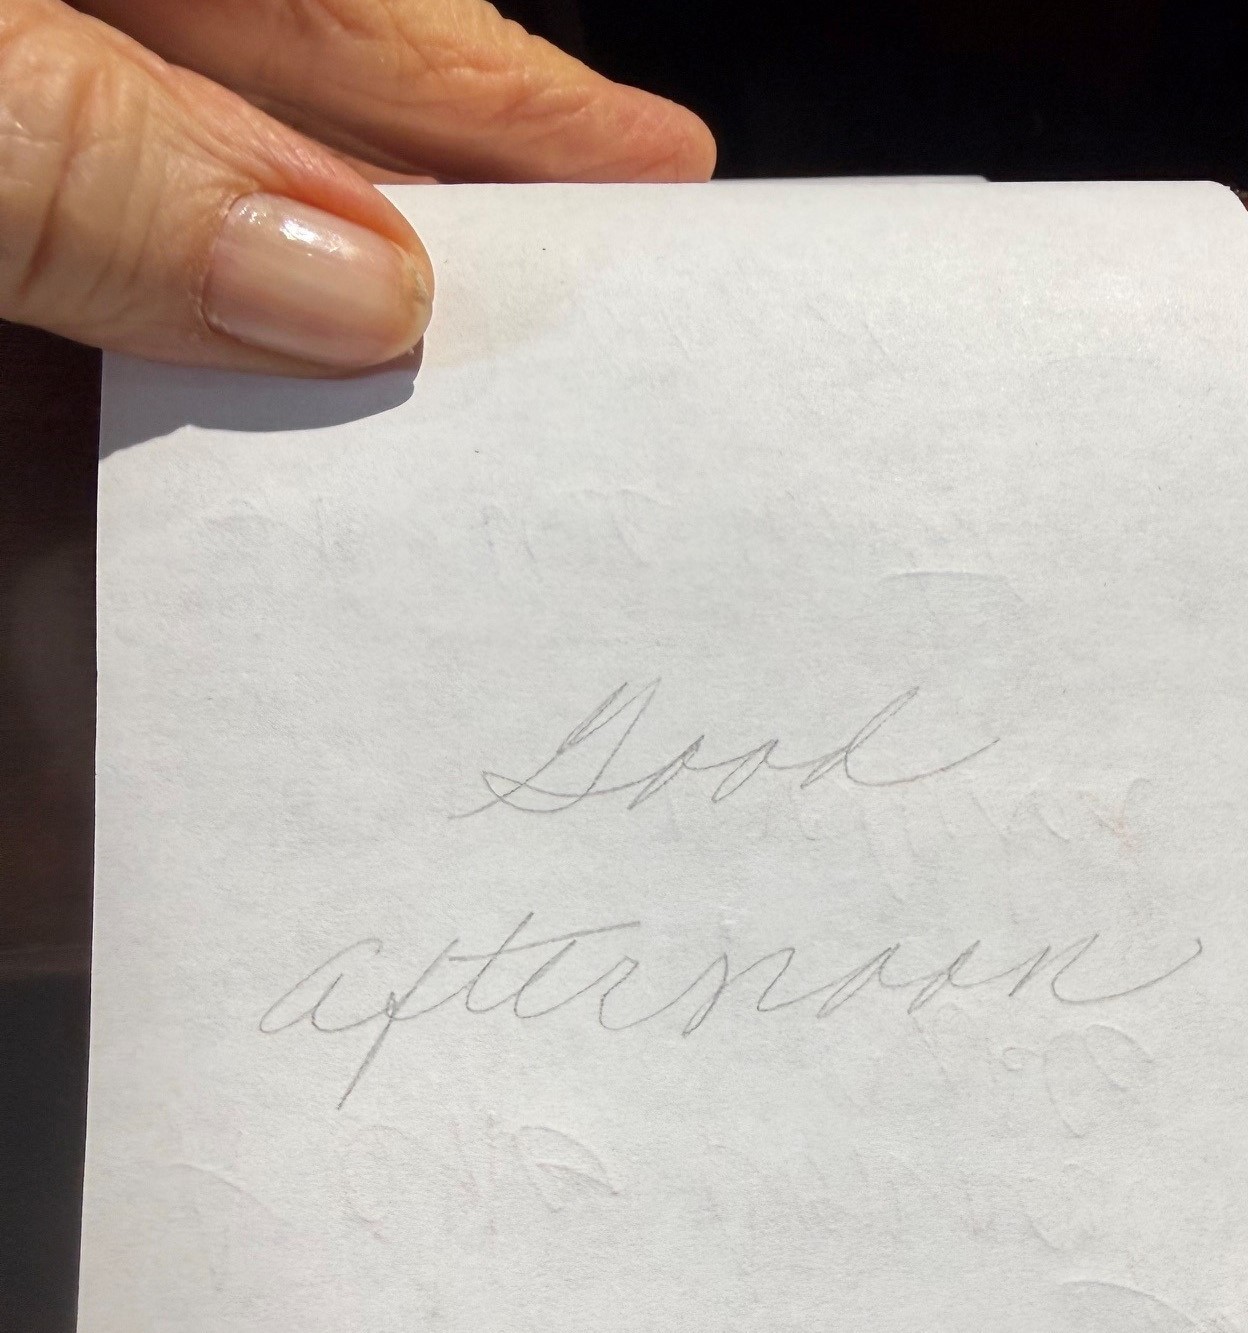 Good
afternoon